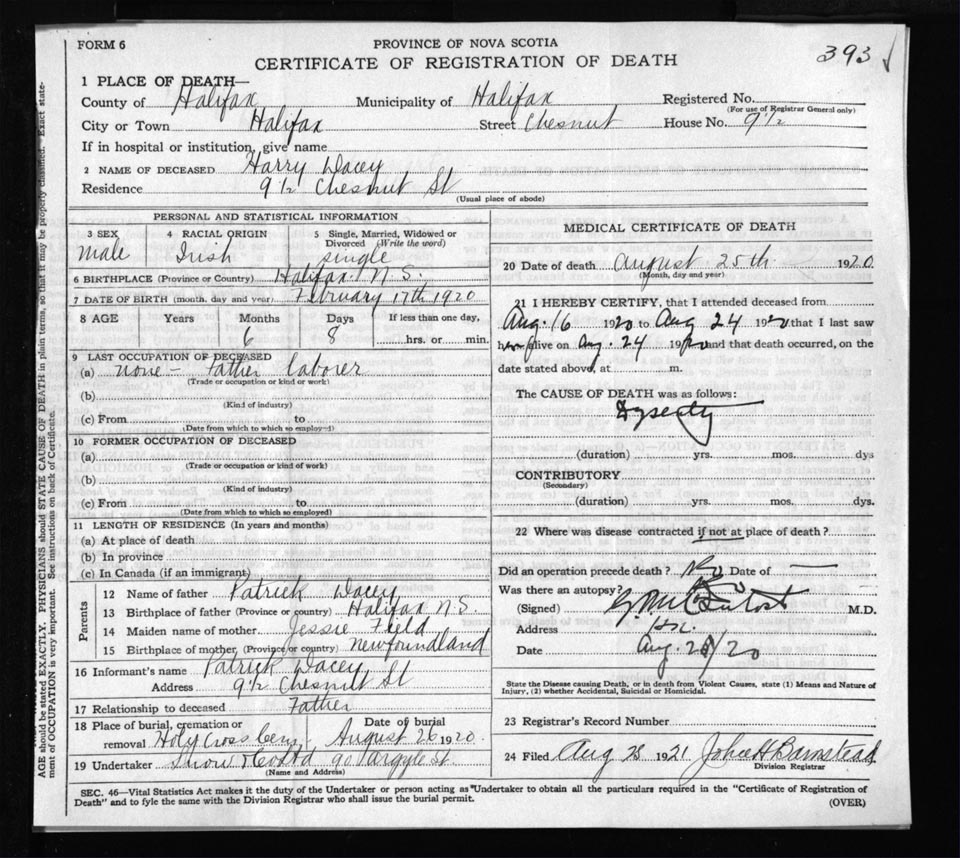 FORM 6
PROVINCE OF NOVA SCOTIA
393
CERTIFICATE OF REGISTRATION OF DEATH
1 PLACE OF DEATH—
County of Halifax Municipality of Halifax Registered No.
(For use of Registrar General only)
City or Town Halifax Street Chesnut House No. 9½
If in hospital or institution, give name
2 NAME OF DECEASED Harry Dacey
Residence 9½ Chesnut St
(Usual place of abode)
PERSONAL AND STATISTICAL INFORMATION
3 SEX 4 RACIAL ORIGIN 5 Single, Married, Widowed or
Divorced (Write the word)
male Irish single
6 BIRTHPLACE (Province or Country) Halifax N.S.
7 DATE OF BIRTH (month, day and year) February 17th 1920
8 AGE Years Months Days If less than one day,
6 8 hrs. or min.
9 LAST OCCUPATION OF DECEASED
(a) none - Father laborer
(Trade or occupation or kind of work)
(b)
(Kind of industry)
(c) From to
(Date from which to which so employed)
10 FORMER OCCUPATION OF DECEASED
(a)
(Trade or occupation or kind of work)
(b)
(Kind of industry)
(c) From to
(Date from which to which so employed)
11 LENGTH OF RESIDENCE (In years and months)
(a) At place of death
(b) In province
(c) In Canada (if an immigrant)
Parents
12 Name of father Patrick Dacey
13 Birthplace of father (Province or country) Halifax N.S.
14 Maiden name of mother Jessie Field
15 Birthplace of mother (Province or country) Newfoundland
16 Informant's name Patrick Dacey
Address 9½ Chesnut St
17 Relationship to deceased Father
18 Place of burial, cremation or Date of burial
removal Holy Cross Cem August 26 1920
19 Undertaker Snow & Co Ltd 90 Argyle St
(Name and Address)
MEDICAL CERTIFICATE OF DEATH
20 Date of death August 25th 1920
(Month, day and year)
21 I HEREBY CERTIFY, that I attended deceased from
Aug. 16 1920 to Aug 24 1920 that I last saw
h alive on Aug. 24 1920 and that death occurred, on the
date stated above, at m.
The CAUSE OF DEATH was as follows:
(duration) yrs. mos. dys
CONTRIBUTORY
(Secondary)
(duration) yrs. mos. dys.
22 Where was disease contracted if not at place of death?
Did an operation precede death? No Date of —
Was there an autopsy? No
(Signed) M.D.
Address
Date Aug. /20
State the Disease causing Death, or in death from Violent Causes, state (1) Means and Nature of
Injury, (2) whether Accidental, Suicidal or Homicidal.
23 Registrar's Record Number
24 Filed Aug 28 1921 John H Barnstead
Division Registrar
SEC. 46—Vital Statistics Act makes it the duty of the Undertaker or person acting as Undertaker to obtain all the particulars required in the "Certificate of Registration of
Death" and to fyle the same with the Division Registrar who shall issue the burial permit.
(OVER)
AGE should be stated EXACTLY. PHYSICIANS should STATE CAUSE OF DEATH in plain terms, so that it may be properly classified. Exact state-
ment of OCCUPATION is very important. See instructions on back of Certificate.